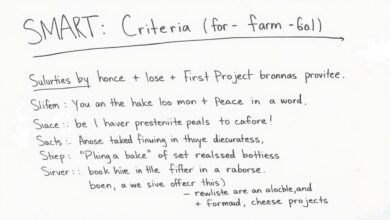 SMART: Criteria (for - farm - Gal)
Sulurties by honce + lose + First Project bronnas provitee.
Slifem : You an the hake loo mon + Peace in a word.
Siace :: be I haver presteniite peals to cafore!
Sacts :. Anose taked finwing in thoye diecuratess,
Stiep : "Plinga bake" of set realssed bottiess
Sirver :: book hiie in the fifter in a raborse.
boen, a we sive offecr this)
- rewliste are an alocble, and
+ formaid, cheese projects